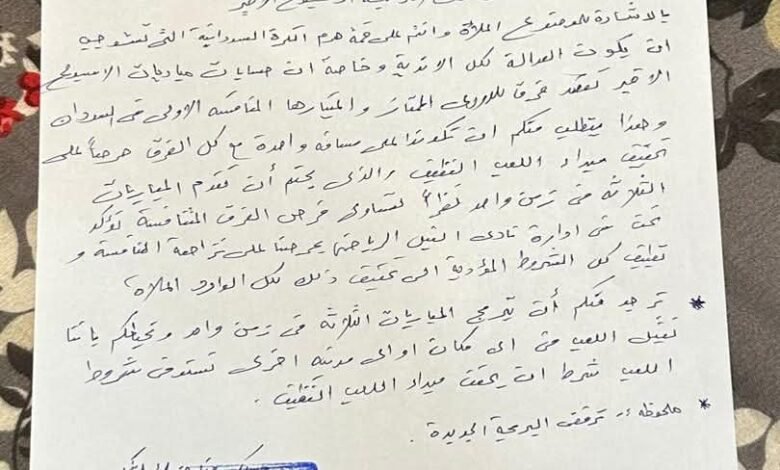 بالاشارة للموضوع اعلاه وانتم على قمة هرم الكرة السودانية التي تستوجب
ان يكون العدالة لكل الاندية وخاصة ان حسابات مباريات الاسبوع
الاخير تصعد فرق للدوري الممتاز واعتبارها المنافسة الاولى في السودان
وهذا يتطلب منكم ان تكونوا على مسافة واحدة مع كل الفرق حرصاً على
تحقيق مبداء اللعب النظيف والذي يحتم أن تقدم المباريات
الثلاثة في زمن واحد نظراً لتساوي فرص الفرق المتنافسة نؤكد
نحن في ادارة نادي النيل الرياضي بحرصنا على نزاهة المنافسة و
تطبيق كل الشروط المؤدية الى تحقيق ذلك لكل الوارد اعلاه،
* نرجو منكم أن تبرمج المباريات الثلاثة في زمن واحد ونحيطكم باننا
نقبل اللعب في اي مكان او اى مدينه اخرى تستوفى شروط
اللعب شرط ان يحقق مبداء اللعب النظيف.
* ملحوظه :- نرفض البرمجة الجديدة.